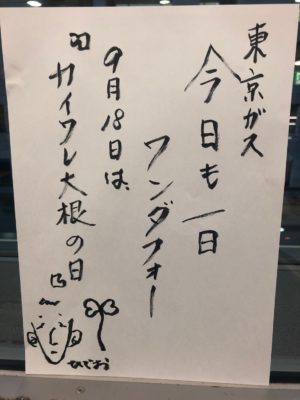 東京ガス
今日も一日
ワンダフォー
9月18日は、
カイワレ大根の日
ひでほう